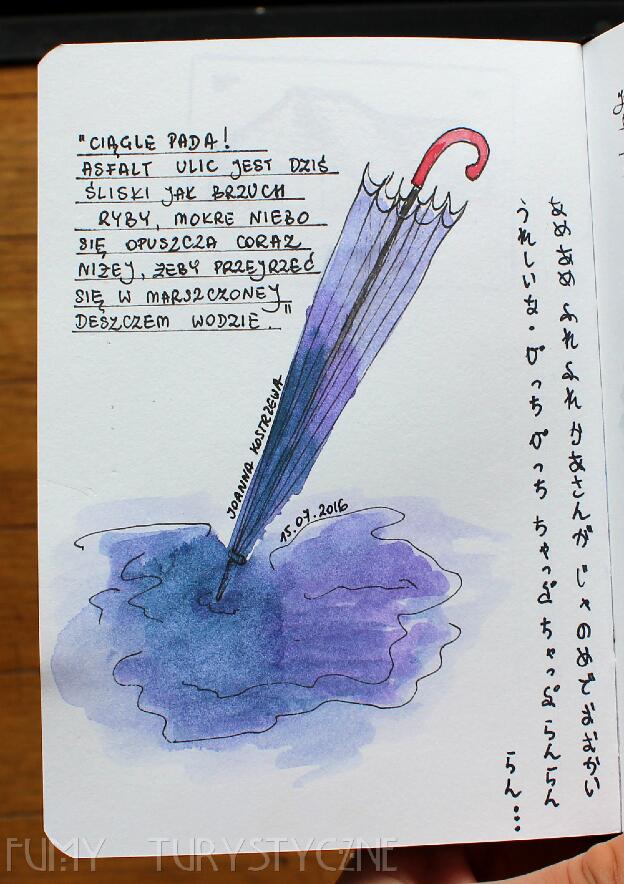 "CIĄGLE PADA!
ASFALT ULIC JEST DZIŚ
ŚLISKI JAK BRZUCH
RYBY, MOKRE NIEBO
SIĘ OPUSZCZA CORAZ
NIŻEJ, ŻEBY PRZEJRZEĆ
SIĘ W MARSZCZONEJ
DESZCZEM WODZIE."
JOANNA KOSTRZEWA
15.07.2016
あめ あめ ふれ ふれ かあさんが じゃのめで おむかい
うれしいな・ぴっち ぴっち ちゃっぷ ちゃっぷ らんらん
らん...
FUMY TURYSTYCZNE